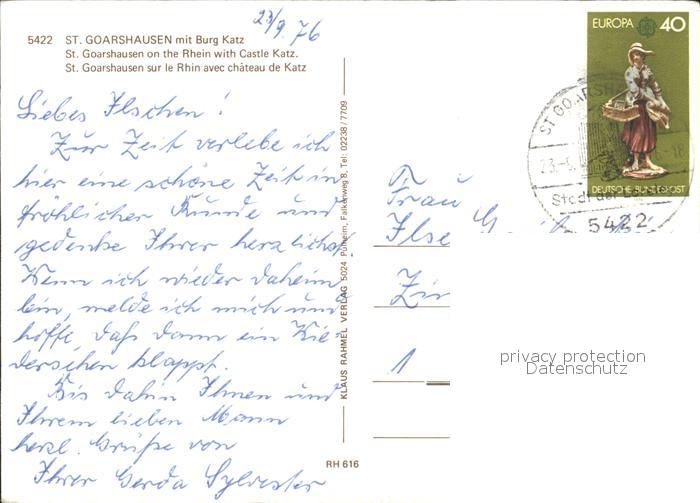 23/9. 76
5422 ST. GOARSHAUSEN mit Burg Katz
St. Goarshausen on the Rhein with Castle Katz.
St. Goarshausen sur le Rhin avec château de Katz
Liebes Ilschen!
Zur Zeit verlebe ich
hier eine schöne Zeit in
fröhlicher Runde und
gedenke Ihrer herzlichst.
Wenn ich wieder daheim
bin, melde ich mich und
hoffe, daß dann ein Wie-
dersehen klappt.
Bis dahin Ihnen und
Ihrem lieben Mann
herzl. Grüße von
Ihrer Gerda Sylvester
KLAUS RAHMEL VERLAG 5024 Pulheim, Falkenweg 8, Tel: 02238/7709
RH 616
EUROPA 40
DEUTSCHE BUNDESPOST
ST GOARSH
23.-
18
Stadt der
5422
Frau
Ilse
Zir
1
privacy protection
Datenschutz